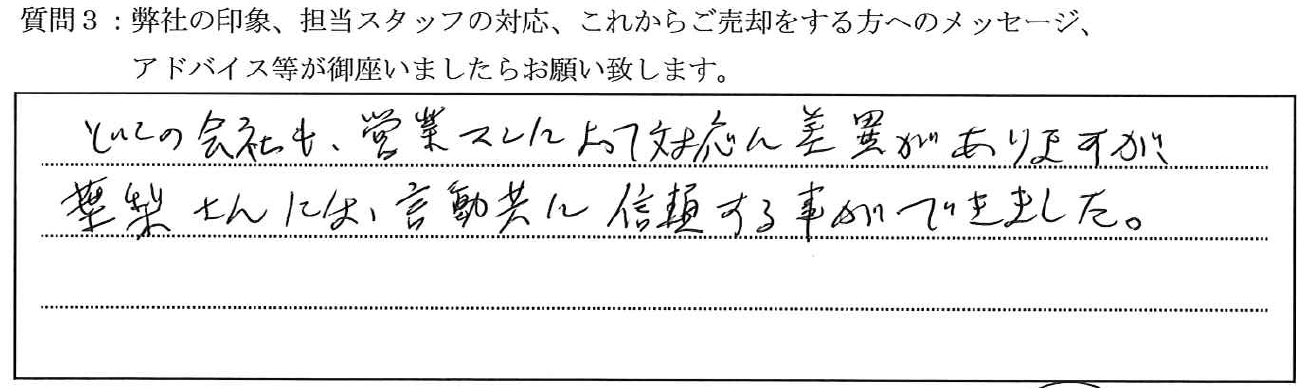 質問3:弊社の印象、担当スタッフの対応、これからご売却をする方へのメッセージ、
アドバイス等が御座いましたらお願い致します。
どこの会社も、営業マンによって対応に差異がありますが、
葉梨さんには、言動共に信頼する事ができました。